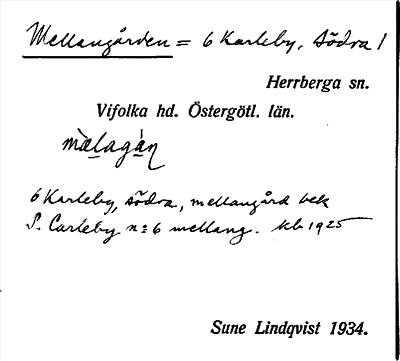 Mellangården = 6 Karleby, Södra /
Herrberga sn.
Vifolka hd. Östergötl. län.
mælagån
6 Karleby, södra, mellangård bek
S. Carleby n:o 6 mellang. kb 1925
Sune Lindqvist 1934.